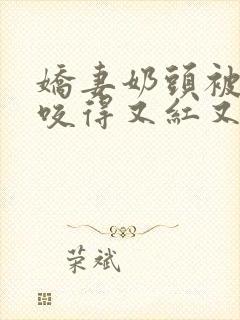 嬌妻奶頭被
咬得又紅又
荣斌